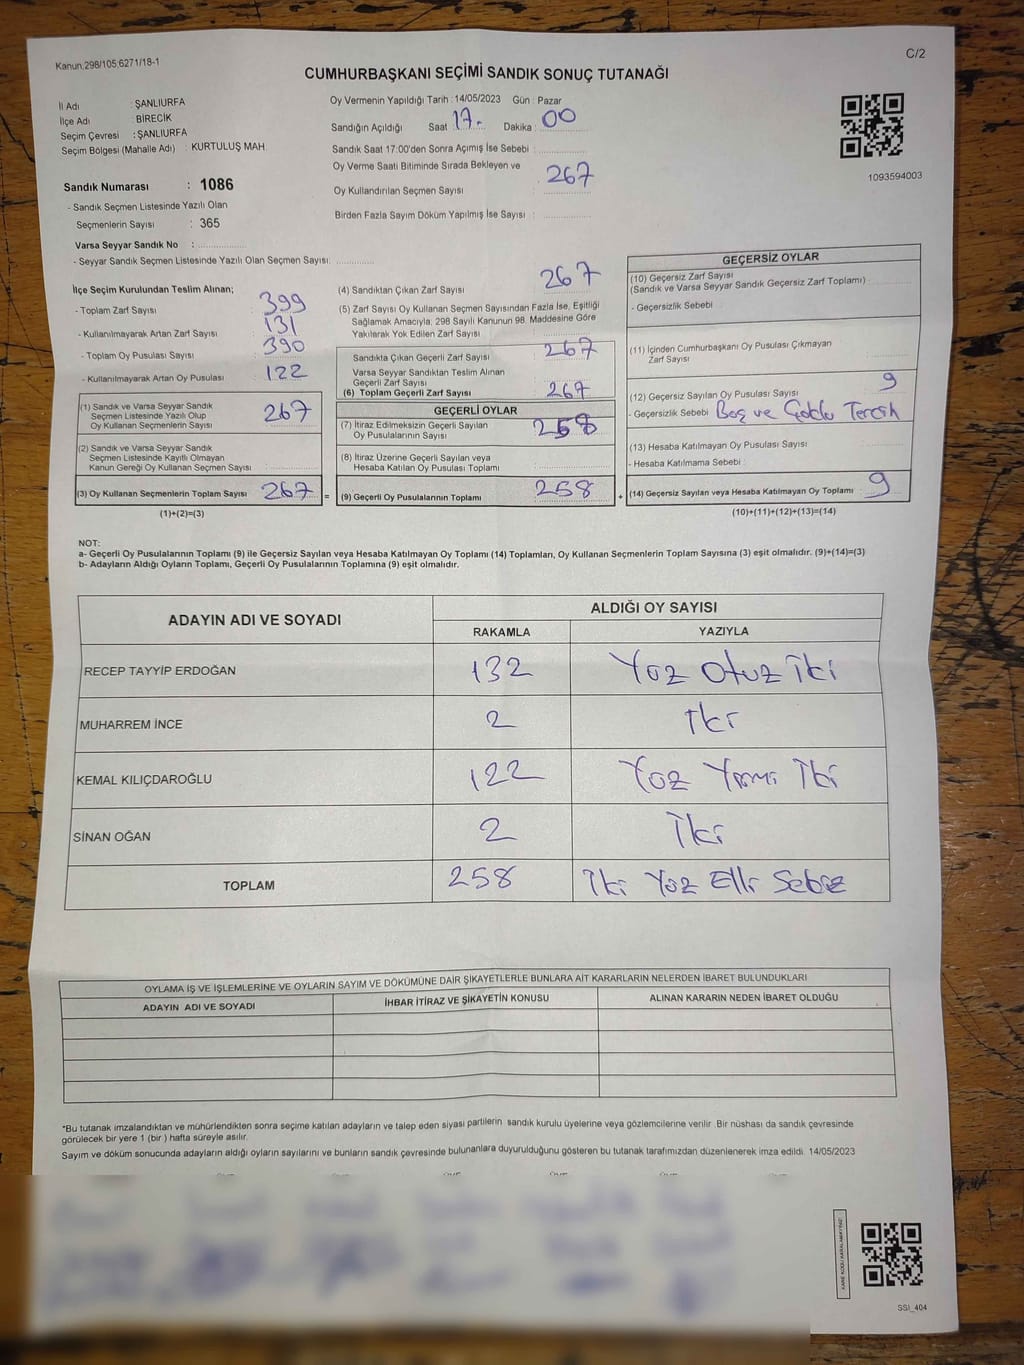 Kanun.298/105;6271/18-1
C/2
CUMHURBAŞKANI SEÇİMİ SANDIK SONUÇ TUTANAĞI
İl Adı : ŞANLIURFA
İlçe Adı : BİRECİK
Seçim Çevresi : ŞANLIURFA
Seçim Bölgesi (Mahalle Adı) : KURTULUŞ MAH.
Sandık Numarası : 1086
- Sandık Seçmen Listesinde Yazılı Olan
Seçmenlerin Sayısı : 365
Varsa Seyyar Sandık No : ..............
- Seyyar Sandık Seçmen Listesinde Yazılı Olan Seçmen Sayısı: ............
Oy Vermenin Yapıldığı Tarih : 14/05/2023 Gün : Pazar
Sandığın Açıldığı Saat 17. Dakika : 00
Sandık Saat 17:00'den Sonra Açımış İse Sebebi : ..............
Oy Verme Saati Bitiminde Sırada Bekleyen ve
Oy Kullandırılan Seçmen Sayısı : 267
Birden Fazla Sayım Döküm Yapılmış İse Sayısı : ..............
1093594003
İlçe Seçim Kurulundan Teslim Alınan;
- Toplam Zarf Sayısı : 399
- Kullanılmayarak Artan Zarf Sayısı : 131
- Toplam Oy Pusulası Sayısı : 390
- Kullanılmayarak Artan Oy Pusulası : 122
(1) Sandık ve Varsa Seyyar Sandık
Seçmen Listesinde Yazılı Olup
Oy Kullanan Seçmenlerin Sayısı : 267
(2) Sandık ve Varsa Seyyar Sandık
Seçmen Listesinde Kayıtlı Olmayan
Kanun Gereği Oy Kullanan Seçmen Sayısı :
(3) Oy Kullanan Seçmenlerin Toplam Sayısı : 267 =
(1)+(2)=(3)
(4) Sandıktan Çıkan Zarf Sayısı : 267
(5) Zarf Sayısı Oy Kullanan Seçmen Sayısından Fazla İse, Eşitliği
Sağlamak Amacıyla, 298 Sayılı Kanunun 98. Maddesine Göre
Yakılarak Yok Edilen Zarf Sayısı :
Sandıkta Çıkan Geçerli Zarf Sayısı : 267
Varsa Seyyar Sandıktan Teslim Alınan
Geçerli Zarf Sayısı
(6) Toplam Geçerli Zarf Sayısı : 267
GEÇERLİ OYLAR
(7) İtiraz Edilmeksizin Geçerli Sayılan
Oy Pusulalarının Sayısı : 258
(8) İtiraz Üzerine Geçerli Sayılan veya
Hesaba Katılan Oy Pusulası Toplamı :
(9) Geçerli Oy Pusulalarının Toplamı : 258 +
GEÇERSİZ OYLAR
(10) Geçersiz Zarf Sayısı
(Sandık ve Varsa Seyyar Sandık Geçersiz Zarf Toplamı) :
- Geçersizlik Sebebi :
(11) İçinden Cumhurbaşkanı Oy Pusulası Çıkmayan
Zarf Sayısı :
(12) Geçersiz Sayılan Oy Pusulası Sayısı : 9
- Geçersizlik Sebebi : Boş ve Çoklu Tercih
(13) Hesaba Katılmayan Oy Pusulası Sayısı :
- Hesaba Katılmama Sebebi :
(14) Geçersiz Sayılan veya Hesaba Katılmayan Oy Toplamı : 9
(10)+(11)+(12)+(13)=(14)
NOT:
a- Geçerli Oy Pusulalarının Toplamı (9) ile Geçersiz Sayılan veya Hesaba Katılmayan Oy Toplamı (14) Toplamları, Oy Kullanan Seçmenlerin Toplam Sayısına (3) eşit olmalıdır. (9)+(14)=(3)
b- Adayların Aldığı Oyların Toplamı, Geçerli Oy Pusulalarının Toplamına (9) eşit olmalıdır.
ADAYIN ADI VE SOYADI
ALDIĞI OY SAYISI
RAKAMLA YAZIYLA
RECEP TAYYİP ERDOĞAN 132 Yüz Otuz İki
MUHARREM İNCE 2 İki
KEMAL KILIÇDAROĞLU 122 Yüz Yirmi İki
SİNAN OĞAN 2 İki
TOPLAM 258 İki Yüz Elli Sekiz
OYLAMA İŞ VE İŞLEMLERİNE VE OYLARIN SAYIM VE DÖKÜMÜNE DAİR ŞİKAYETLERLE BUNLARA AİT KARARLARIN NELERDEN İBARET BULUNDUKLARI
ADAYIN ADI VE SOYADI İHBAR İTİRAZ VE ŞİKAYETİN KONUSU ALINAN KARARIN NEDEN İBARET OLDUĞU
*Bu tutanak imzalandıktan ve mühürlendikten sonra seçime katılan adayların ve talep eden siyasi partilerin sandık kurulu üyelerine veya gözlemcilerine verilir. Bir nüshası da sandık çevresinde
görülecek bir yere 1 (bir ) hafta süreyle asılır.
Sayım ve döküm sonucunda adayların aldığı oyların sayılarını ve bunların sandık çevresinde bulunanlara duyurulduğunu gösteren bu tutanak tarafımızdan düzenlenerek imza edildi. 14/05/2023
KARE KODU KARALAMAYINIZ!
SSI_404